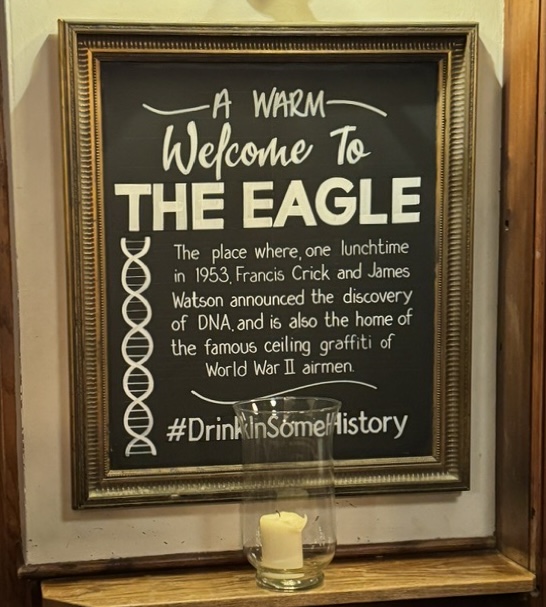 A WARM
Welcome To
THE EAGLE
The place where, one lunchtime
in 1953, Francis Crick and James
Watson announced the discovery
of DNA, and is also the home of
the famous ceiling graffiti of
World War II airmen.
#DrinkInSomeHistory